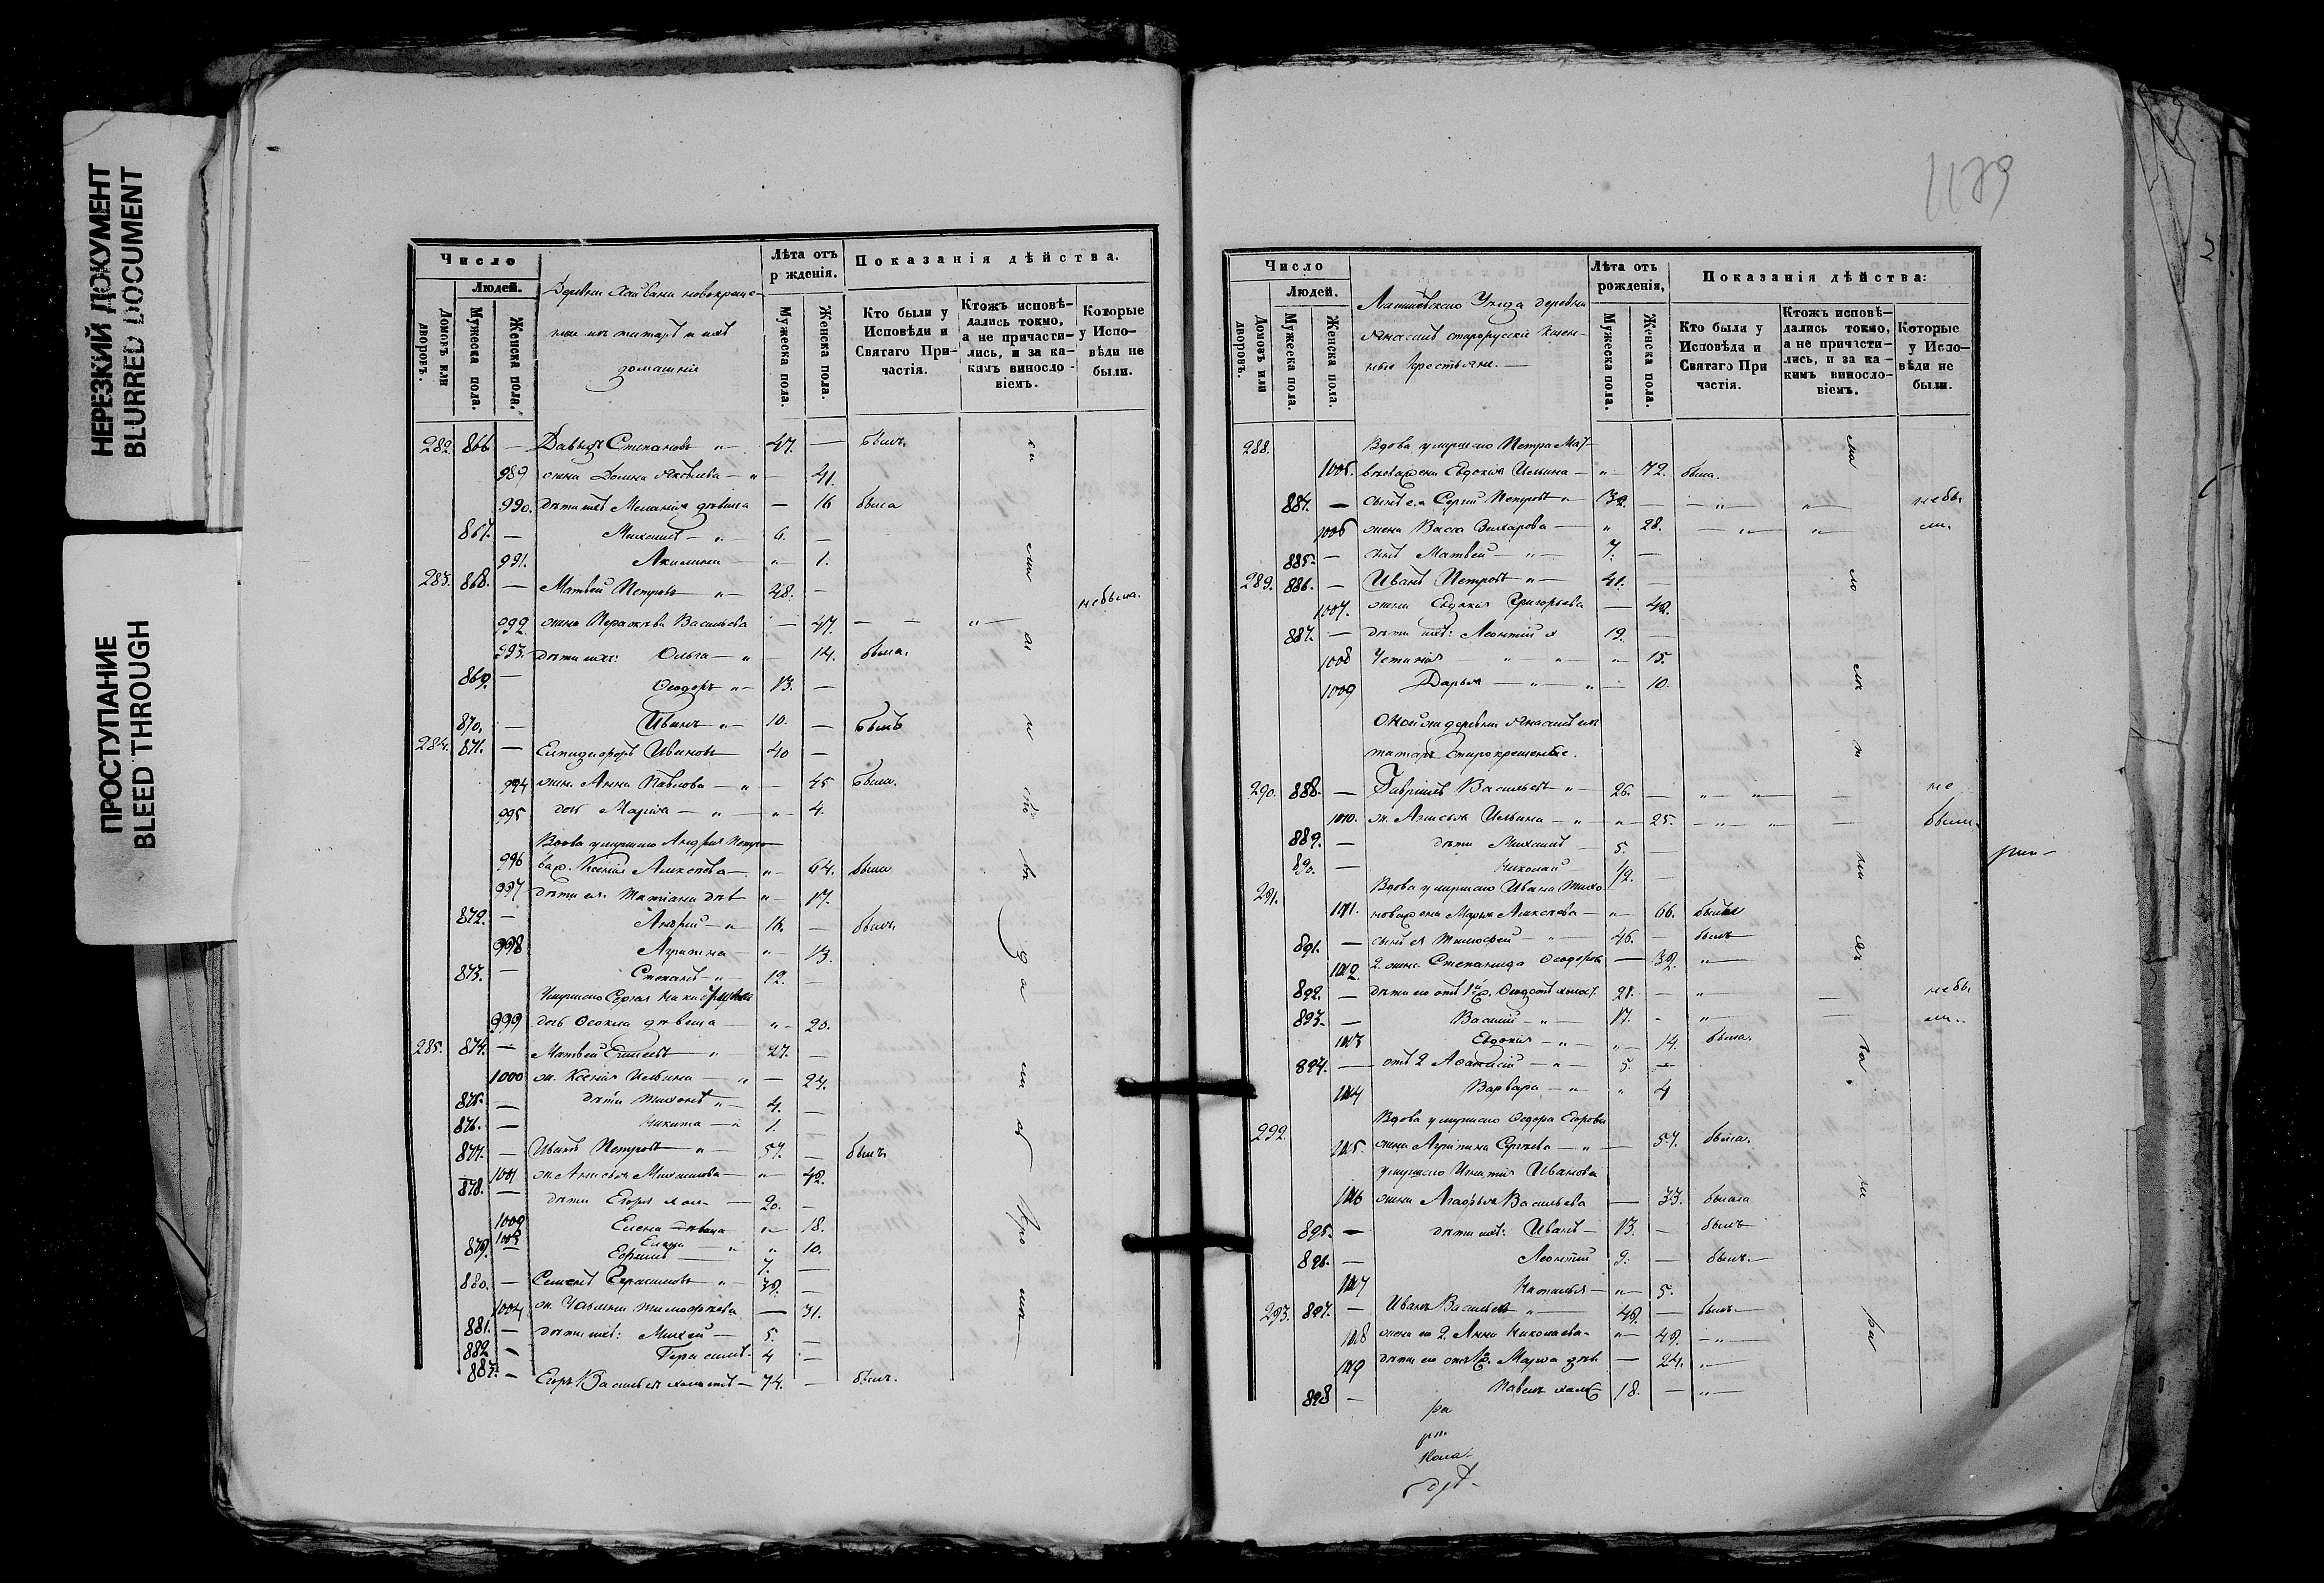 НЕРЕЗКИЙ ДОКУМЕНТ
BLURRED DOCUMENT
ПРОСТУПАНИЕ
BLEED THROUGH
Число
Людей.
Домовъ или дворовъ.
Мужеска пола.
Женска пола.
Деревни новокреще-
ные изъ татаръ и ихъ
домашнія
Лѣта отъ
р жденія.
Мужеска пола.
Женска пола.
Показанія дѣйства.
Кто были у
Исповѣди и
Святаго При-
частія.
Ктожъ исповѣ-
дались токмо,
а не причасти-
лись, и за ка-
кимъ виносло-
віемъ.
Которые
у Испо-
вѣди не
были.
282. 866 — Давыдъ Степановъ 47. — былъ
989 жена Яковлева — 41.
990. дѣти ихъ Меланія дѣвица — 16 была
867. — Михаилъ 6. —
991. Акилина 1.
283. 868. — Матвей Петровъ 48. —
992. жена Параскѣва Васильева — 47. небыла.
993. дѣти ихъ: Ольга — 14. была.
869. — Ѳеодоръ 13. —
870. — Иванъ 10. — былъ
284. 871. — Елпидифоръ Ивановъ 40 —
994 жена Анна Павлова — 45 была.
995 дочь Марѳа 4.
Вдова умершаго Андрея Петро
996 ва ж. Ксенія Алексѣева 64. была
997 дѣти ея: Татіана дѣв 17.
872. — Андрей 16. — былъ
998 Агрипина 13.
873. — Степанъ 12. —
Умершаго Сергея
999 дочь Ѳекла дѣвица 20.
285. 874. — Матвей 27. —
1000 ж. Ксенія Ильина — 24.
875. — дѣти Тихонъ 4. —
876. — Никита 1. —
877. — Иванъ Петровъ 57. — былъ
1001 ж. Анисья Михаилова 48.
878. — дѣти Егоръ хол. 20. —
1002 Елена дѣвица 18.
1003 Елена 10.
879. — Ефимъ 7. —
880. — Семенъ Герасимовъ 38. —
1004 ж. Ульяна Тимофѣева — 31.
881. — дѣти ихъ: Михей 5. —
882 — Герасимъ 4 —
883. — Егоръ Васильевъ холостъ 74. — былъ.
1179
Число
Людей.
Домовъ или дворовъ.
Мужеска пола.
Женска пола.
Лаишевскаго Уѣзда деревни
старорускіе казен-
ные крестьяне. —
Лѣта отъ
рожденія,
Мужеска пола.
Женска пола.
Показанія дѣйства:
Кто были у
Исповѣди и
Святаго При
частія.
Ктожъ исповѣ-
дались токмо,
а не причасти-
лись, и за ка-
кимъ виносло-
віемъ.
Которые
у Испо-
вѣди не
были.
288. Вдова умершаго Петра Мат
1005. вѣева жена Евдокія Ильина 72. была.
884. — сынъ ея Сергій Петровъ 32. — небы
1006 жена Васса Захарова 28. ли.
885. — сынъ Матвей 7. —
289. 886. — Иванъ Петровъ 41. —
1007. жена Евдокія Григорьева — 42.
887. — дѣти ихъ: Леонтій 19. —
1008 Устинія 15.
1009 Дарья 10.
Оной же деревни изъ
татаръ старокрещеные.
290. 888. — Гавріилъ Васильевъ 26. — не
1010. ж. Анисья Ильина 25. были.
889. — дѣти Михаилъ 5. —
890. — Николай 1/2. —
291. Вдова умершаго Ивана Тихо
1011. нова жена Марья Алексѣева 66. была
891. — сынъ ея Тимофей 46. — былъ
1012. 2. жена Степанида Ѳеодоров — 32.
892. — дѣти его отъ 1й ж. Ѳедотъ холост. 21. — небы
893. — Василій 17. — ли.
1013 Евдокія 14. была.
894. — отъ 2 Аѳанасій 5. —
1014 Варвара 4
292. Вдова умершаго Ѳедора Егорова
1015. жена Агрипина Сергѣева — 57. была.
умершаго Игнатія Иванова
1016 жена Агафья Васильева — 33. была
895. — дѣти ихъ: Иванъ 13. — былъ
896. — Леонтій 9. — былъ.
1017 Наталья 5.
293. 897. — Иванъ Васильевъ 48. — былъ
1018 жена его 2. Анна Николаева 49.
1019 дѣти его отъ 1й ж. Марѳа дѣв. — 24.
898 — Павелъ холос 18. —